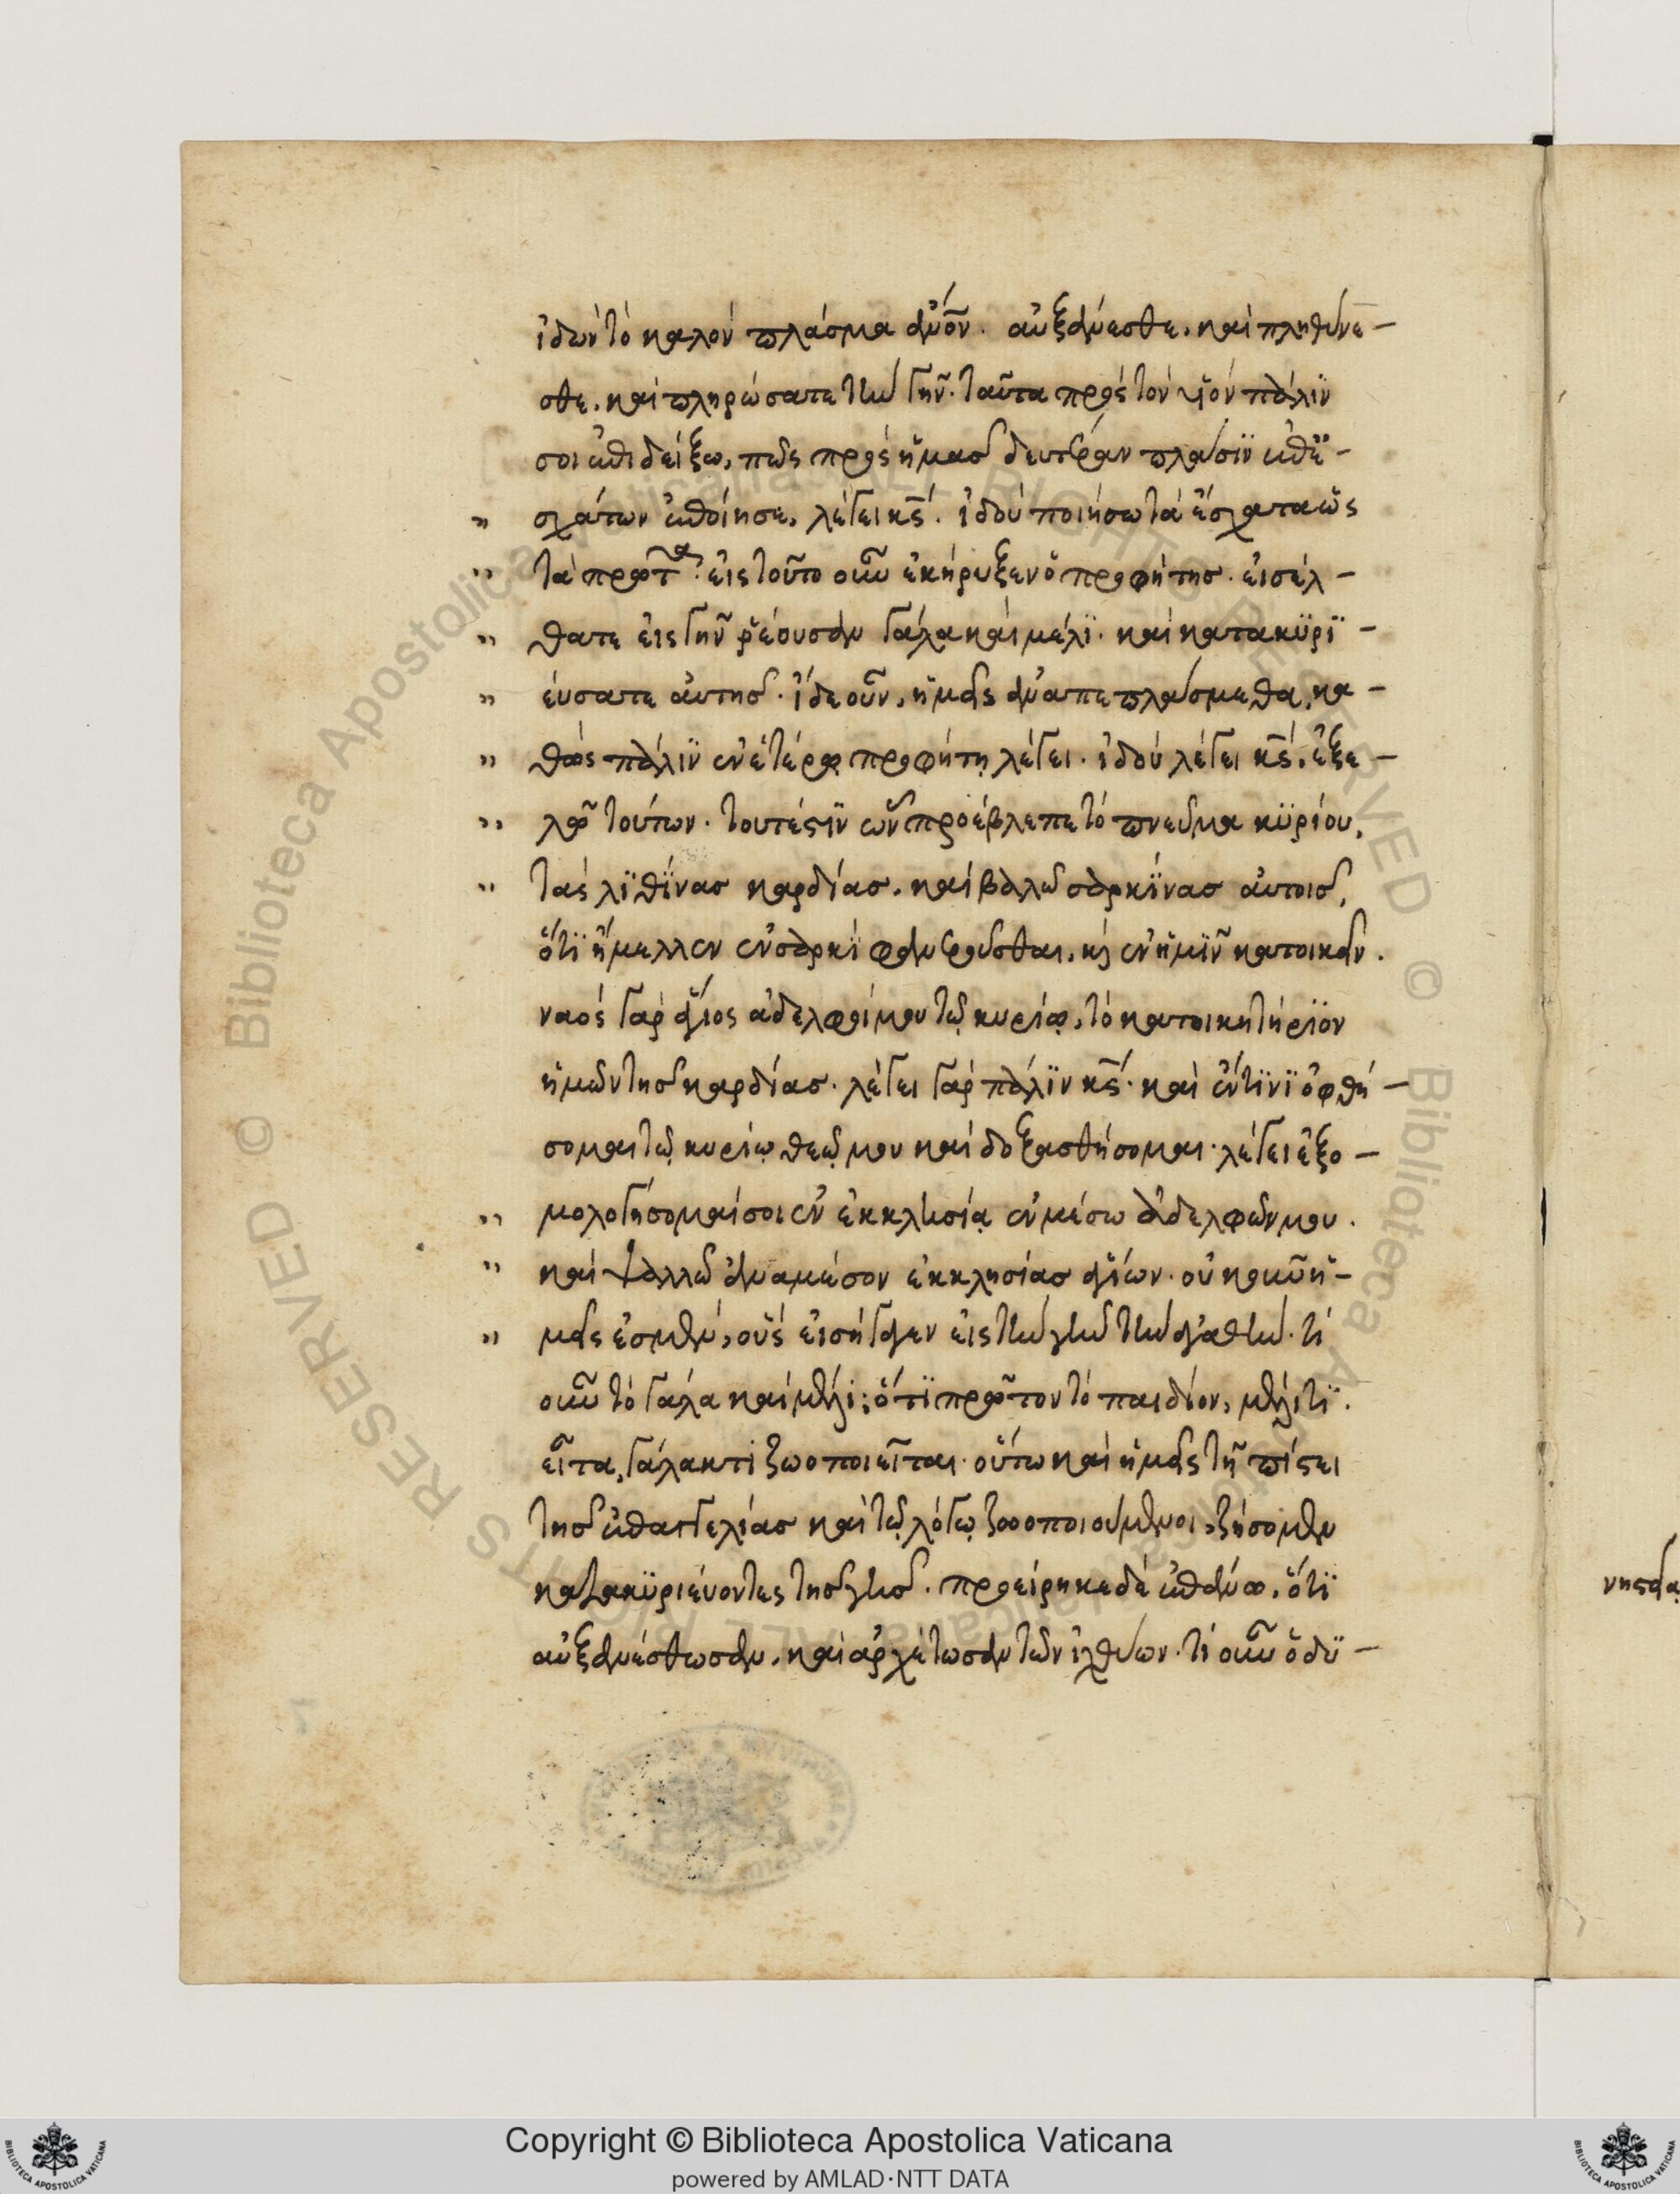 ἰδὼν τὸ καλὸν πλάσμα ἀνον. αὐξάνεσθε, καὶ πληθύνε-
σθε, καὶ πληρώσατε τὴν γῆν. ταῦτα πρὸς τὸν υἱόν πάλϊν
σοι ἐπιδείξω, πῶς πρὸς ἡμασ δευτέραν πλάσϊν ἐπἐ-
σχάτων ἐποίησε, λέγει κς. ἰδοὺ ποιήσω τὰ ἔσχατα ὡς
τὰ πρῶτα. εἰς τοῦτο οὖν ἐκήρυξεν ὁ προφήτησ. εἰσέλ-
θατε εἰς γῆν ῥέουσαν γάλα καὶ μέλϊ. καὶ κατακϋρϊ-
έυσατε ἀυτησ. ἴδε οὖν, ἡμᾶς ἀναπεπλάσμεθα, κα-
θὼς πάλϊν ἐν ἑτέρω προφήτη λέγει. ἰδοὺ λέγει κς, ἐξε-
λῶ τούτων. τουτέστϊν ὧν προέβλεπε τὸ πνεῦμα κϋρίου,
τὰς λϊθΐνασ καρδίασ, καὶ βαλῶ σαρκΐνασ ἀυτοισ,
ὅτϊ ἤμελλεν ἐν σαρκὶ φανεροῦσθαι, κὶ ἐν ἡμῖν κατοικεῖν.
ναὸς γὰρ ἅγιος ἀδελφοί μου τῶ κυρίω, τὸ κατοικητήρϊον
ἡμῶν τῆσ καρδίασ. λέγει γὰρ πάλϊν κς. καὶ ἐν τΐνϊ ὀφθή-
σομαι τῶ κυρίω θεῶ μου καὶ δοξασθήσομαι. λέγει ἐξο-
μολογήσομαί σοι ἐν ἐκκλησία ἐν μέσω ἀδελφῶν μου.
καὶ ψαλλῶ ἀναμέσον ἐκκλησίασ ἁγίων. οὐκοῦν ἡ-
μεῖς ἐσμὲν, οὓς εἰσήγαγεν εἰς τὴν γῆν τὴν ἀγαθὴν. τί
οὖν τὸ γάλα καὶ μέλϊ; ὅτϊ πρῶτον τὸ παιδίον, μέλιτϊ.
εἶτα, γάλακτι ζωοποιεῖται. οὕτω καὶ ἡμεῖς τῆ πίστει
τησ ἐπαγγελίασ καὶ τῶ λόγω ζωοποιούμενοι, ζήσομεν
κατακϋριέυοντες τησ γησ. προείρηκε δὲ ἐπάνω, ὅτϊ
αὐξανέσθωσαν, καὶ ἀρχέτωσαν τῶν ἰχθύων. τί οὖν ὁ δϋ-
Copyright © Biblioteca Apostolica Vaticana
powered by AMLAD·NTT DATA